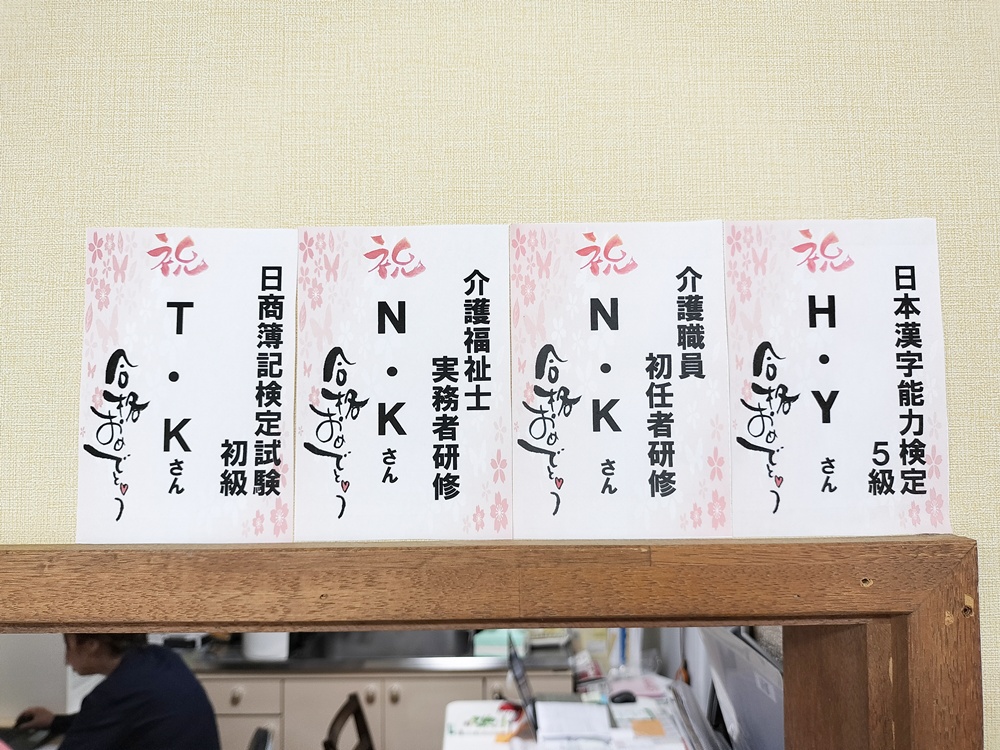 祝
日商簿記検定試験
初級
T・Kさん
合格おめでとう
祝
介護福祉士
実務者研修
N・Kさん
合格おめでとう
祝
介護職員
初任者研修
N・Kさん
合格おめでとう
祝
日本漢字能力検定
5級
H・Yさん
合格おめでとう